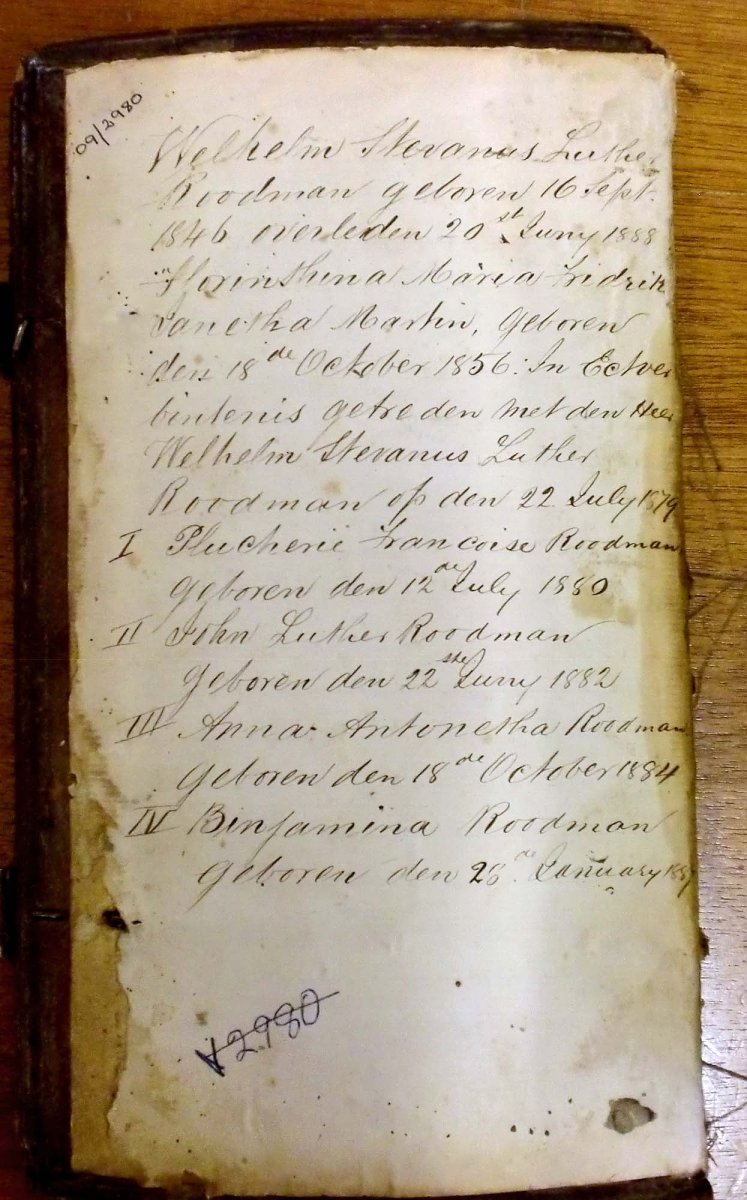 09/2980
Welhelm Stevanus Luther
Roodman geboren 16 Sept.
1846 overleden 20st Juny 1888
Maria Fridrik
Janetha Martin, Geboren
den 18de October 1856. In Echtver
bintenis getreden met den Heer
Welhelm Stevanus Luther
Roodman op den 22 July 1879
I Plucherie Francoise Roodman
geboren den 12de July 1880
II John Luther Roodman
geboren den 22ste Juny 1882
III Anna Antonetha Roodman
geboren den 18de October 1884
IV Binjamina Roodman
geboren den 26de January 1887
V2980